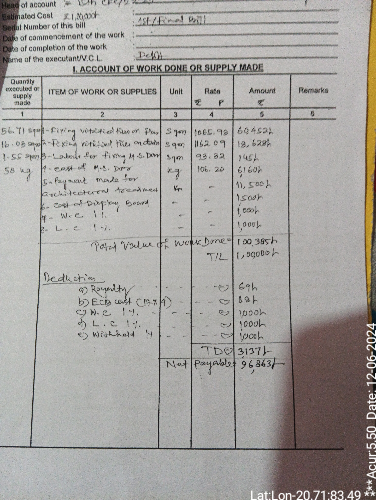 Head of account
Estimated Cost
Serial Number of this bill 1st/Final Bill
Date of commencement of the work
Date of completion of the work
Name of the executant/V.C.L.
I. ACCOUNT OF WORK DONE OR SUPPLY MADE
Quantity executed or supply made ITEM OF WORK OR SUPPLIES Unit Rate Amount Remarks
₹ P ₹
1 2 3 4 5 6
56.71 sqm 1- Fixing vitrified tiles on floor Sqm 1065.93 60452/-
16.03 sqm 2- Fixing vertical tiles on Sqm 1162.09 18,628/-
1.55 sqm 3- Labour for fixing M.S. Door Sqm 93.32 145/-
58 kg 4- cost of M.S. Door kg 106.20 6,160/-
5- Payment made for
architectural 11,500/-
6- cost of Display Board 1500/-
7- W.C 1% 1,000/-
8- L.C 1% 1,000/-
Total Value of Work Done= 1,00,385/-
T/L 1,00000/-
Deduction
a) Royalty - 69/-
b) - 68/-
c) W.C 1% - 1000/-
d) L.C 1% - 1000/-
e) Withheld - 1000/-
TD 3137/-
Net Payable= 96,863/-
Lat:Lon-20.71:83.49 *** Acur:5.50 Date: 12-06-2024